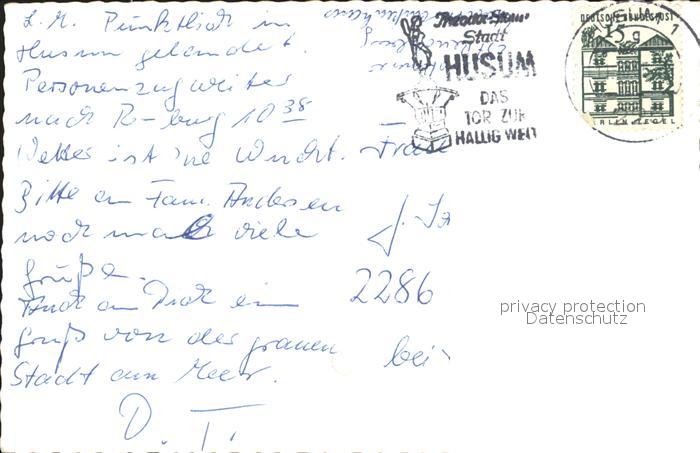 L. M. Pünktlich in
Husum gelandet.
Personenzug weiter
nach R-burg 10 38
Wetter ist 'ne Wucht.
Bitte an Fam. Andersen
noch mal viele
Grüße.
Auch an Dich ein
Gruß von der grauen
Stadt am Meer.
D. T.
Theodor-Storm-
Stadt
HUSUM
DAS
TOR ZUR
HALLIG WELT
DEUTSCHE BUNDESPOST
15
Frau
2286
bei
privacy protection
Datenschutz